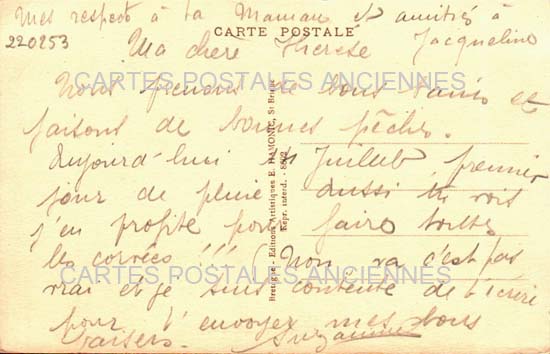 Mes respects à ta Maman et amitiés à
Jacqueline
220253
CARTE POSTALE
Ma chère Thérèse
Nous prenons de bons bains et
faisons de bonnes pêches.
Aujourd'hui Juillet premier
jour de pluie aussi tu vois
j'en profite pour faire toutes
les corvées !!! (Non, va c'est pas
vrai et je suis contente de t'écrire
pour t'envoyer mes bons
baisers. Suzanne
Bretagne - Editions Artistiques E. HAMONIC, St Brieuc
Repr. interd. - 8802
CARTES POSTALES ANCIENNES
CARTES POSTALES ANCIENNES